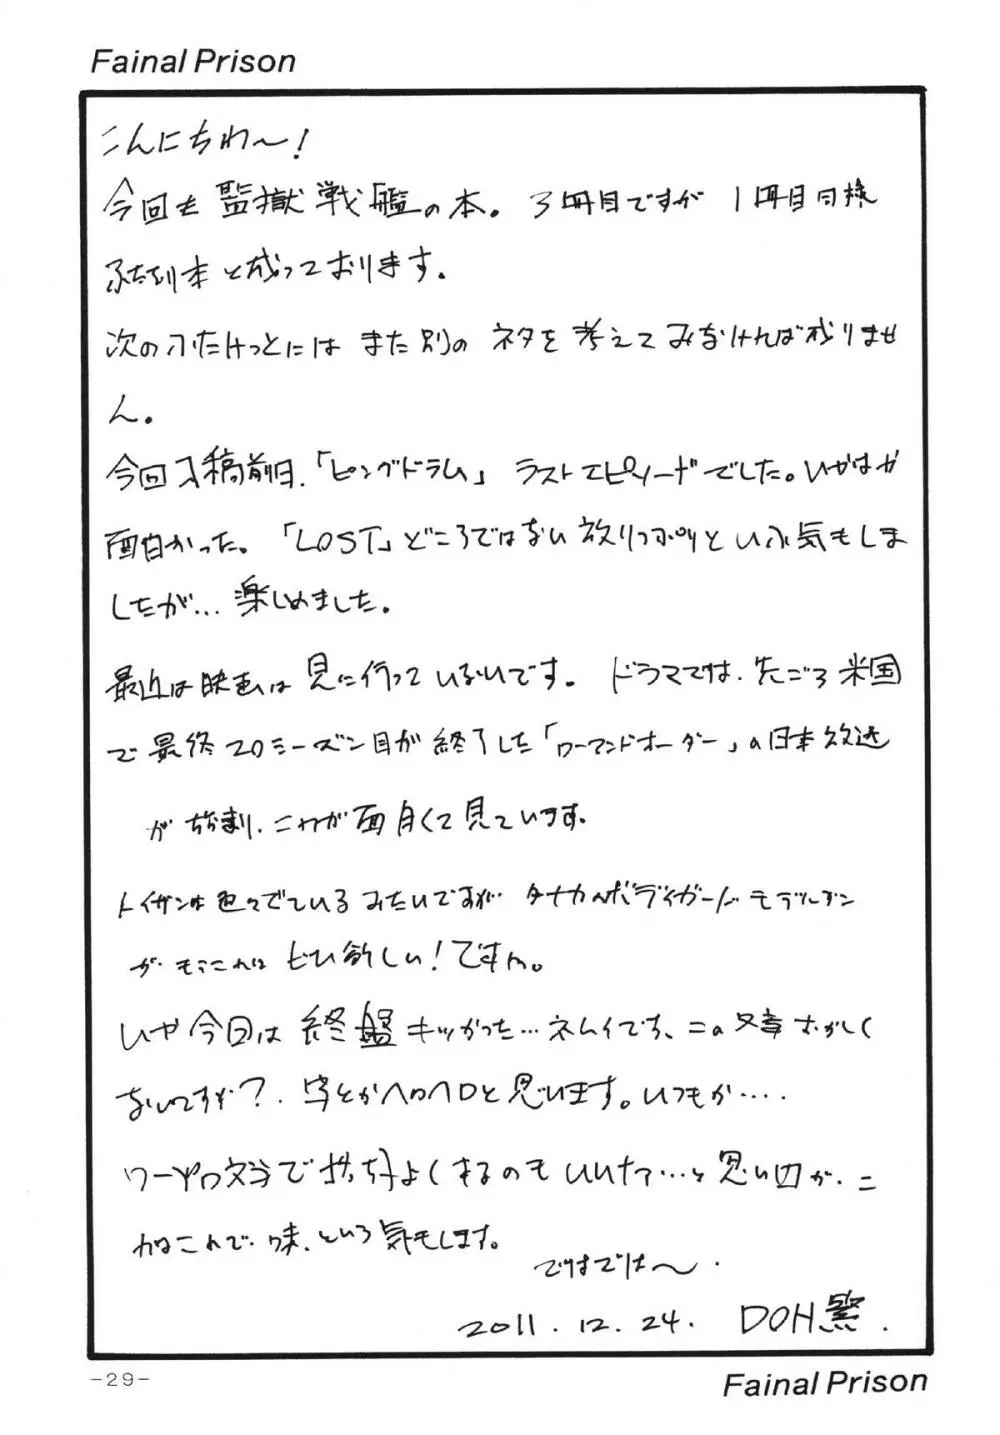 Fainal Prison
こんにちわ〜!
今回も監獄戦艦の本。3冊目ですが1冊目同様
ふたなり本と成っております。
次のふたけっとにはまた別のネタを考えてみなければ成りませ
ん。
今回入稿前日、「ピングドラム」ラストエピソードでした。いやはや
面白かった。「LOST」どころではない放りっぷりという気もしま
したが…楽しめました。
最近は映画は見に行っていないです。ドラマでは、先ごろ米国
で最終20シーズン目が終了した「ローアンドオーダー」の日本放送
が始まり、これが面白くて見ています。
トイガンは色々でているみたいですが タナカのボディガードモデルガン
が、もうこれは ぜひ欲しい!ですね。
いや今回は終盤キツかった…ネムイです、この文章おかしく
ないですか?、字とかヘロヘロと思います。いつもか‥‥
ワープロ文字で よくするのもいいなァ…と思いつつ
これはこれで味、という気もします。
ではでは〜.
2011.12.24. DOH繁.
-29-
Fainal Prison